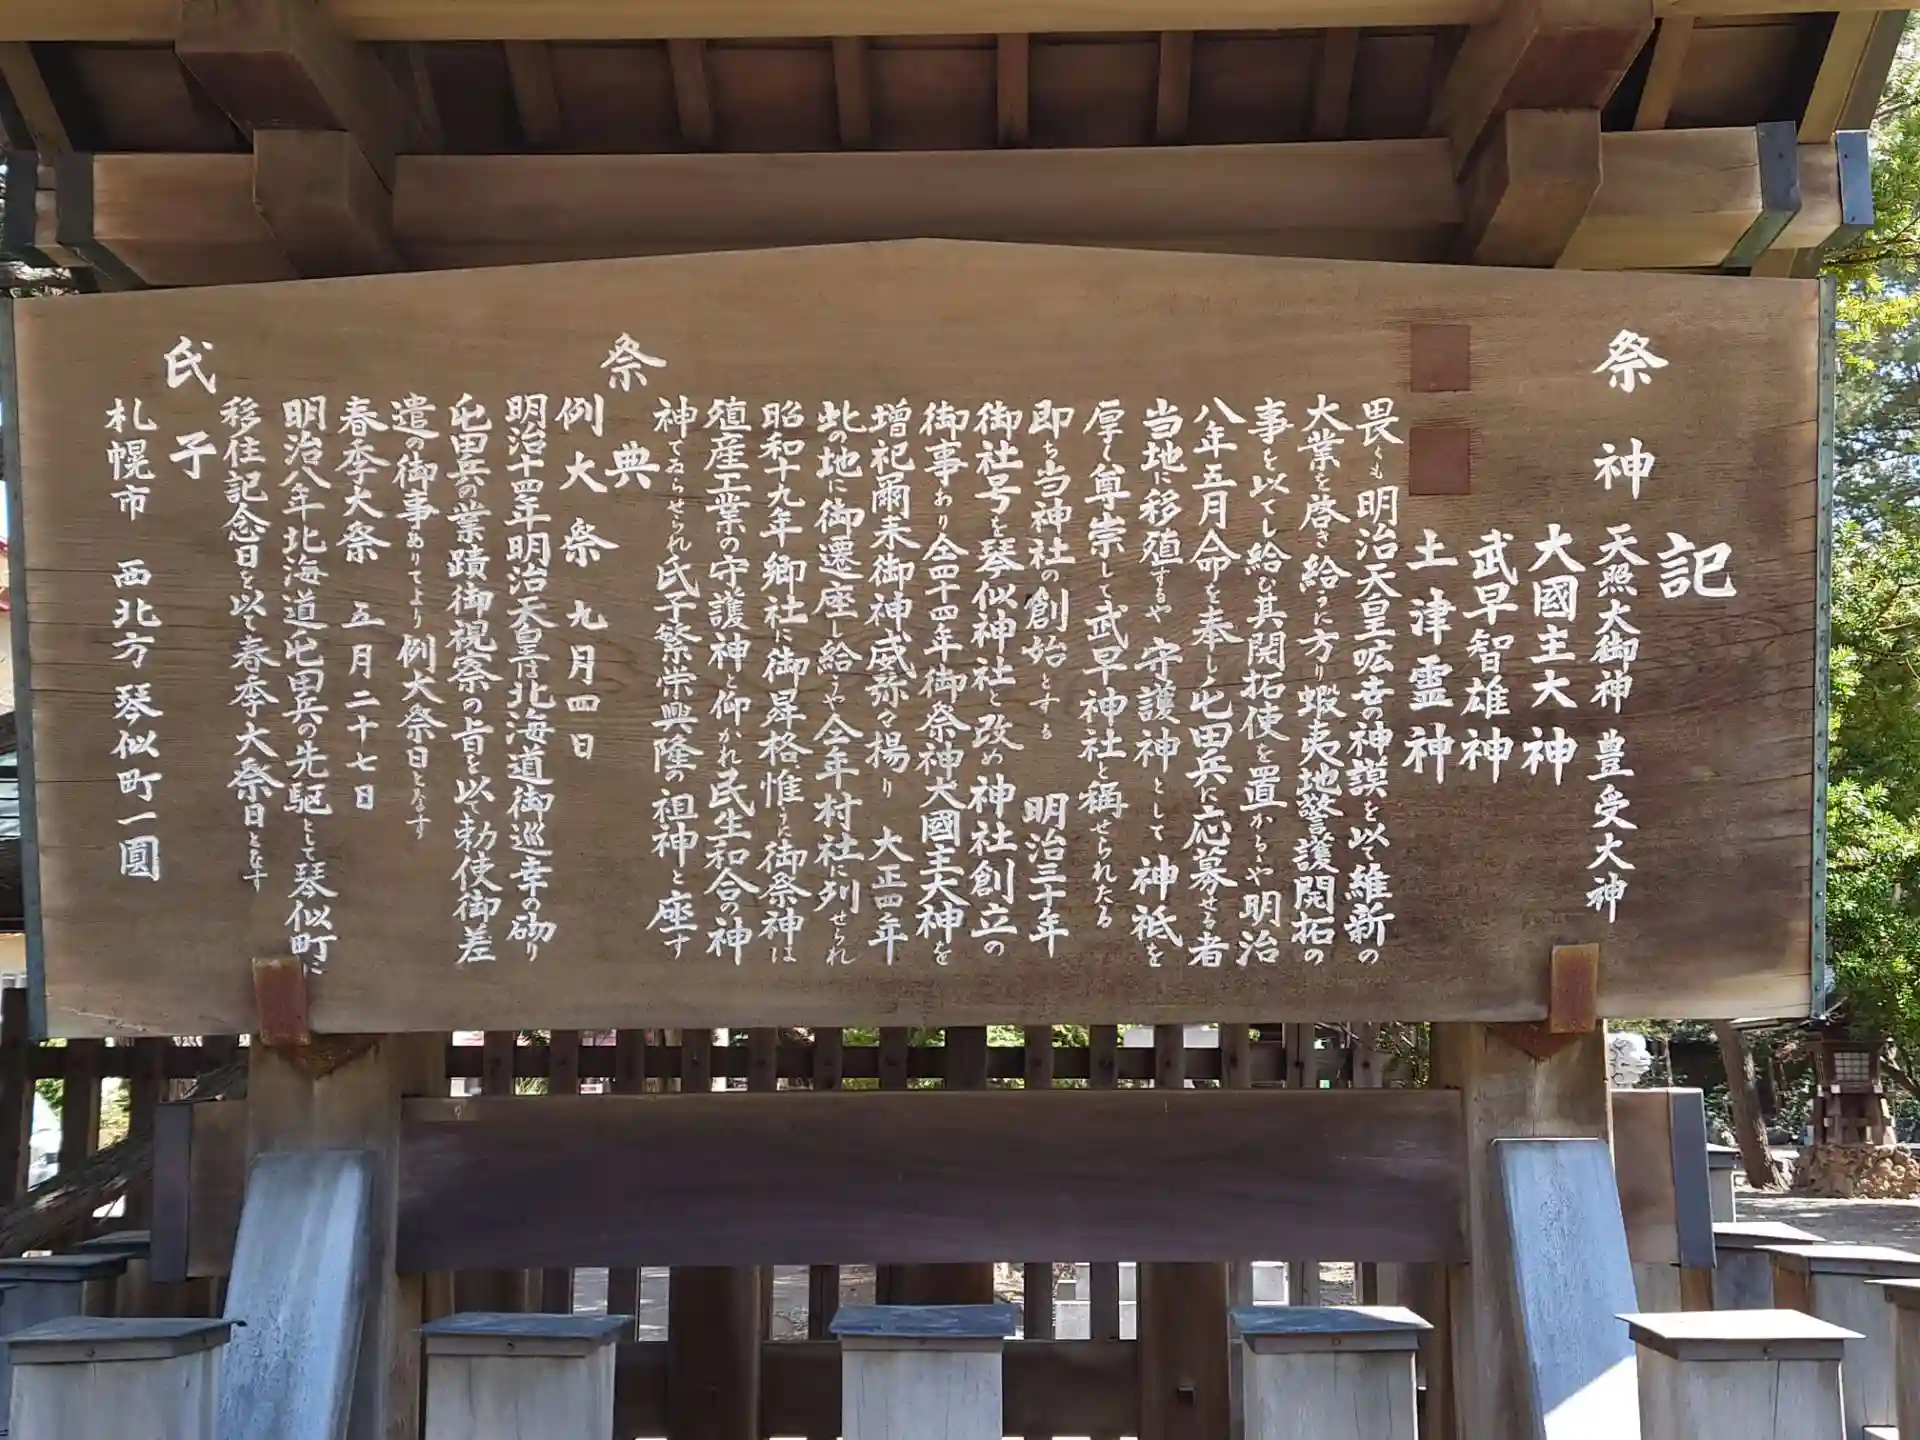 記
祭神
天照大御神 豊受大神
大國主大神
武早智雄神
土津霊神
畏くも明治天皇宏吉の神謨を以て維新の
大業を啓き給うに方り蝦夷地警護開拓の
事を以てし給ひ其開拓使を置かるゝや明治
八年五月命を奉し屯田兵に応募せる者
当地に移殖するや守護神として神祇を
厚く尊崇して武早神社と稱せられたる
即ち当神社の創始とする 明治三十年
御社号を琴似神社と改め神社創立の
御事あり仝四十四年御祭神大國主大神を
増祀爾来御神威弥々揚り 大正四年
此の地に御遷座し給うや仝年村社に列せられ
昭和十九年郷社に御昇格惟うに御祭神は
殖産工業の守護神と仰かれ民生和合の神
神てゐらせられ氏子繁栄興隆の祖神と座す
祭典
例大祭 九月四日
明治十四年明治天皇は北海道御巡幸の砌り
屯田兵の業蹟御視察の旨を以て勅使御差
遣の御事ありてより例大祭日となす
春季大祭 五月二十七日
明治八年北海道屯田兵の先駆として琴似町に
移住記念日を以て春季大祭日となす
氏子
札幌市 西北方 琴似町一圓